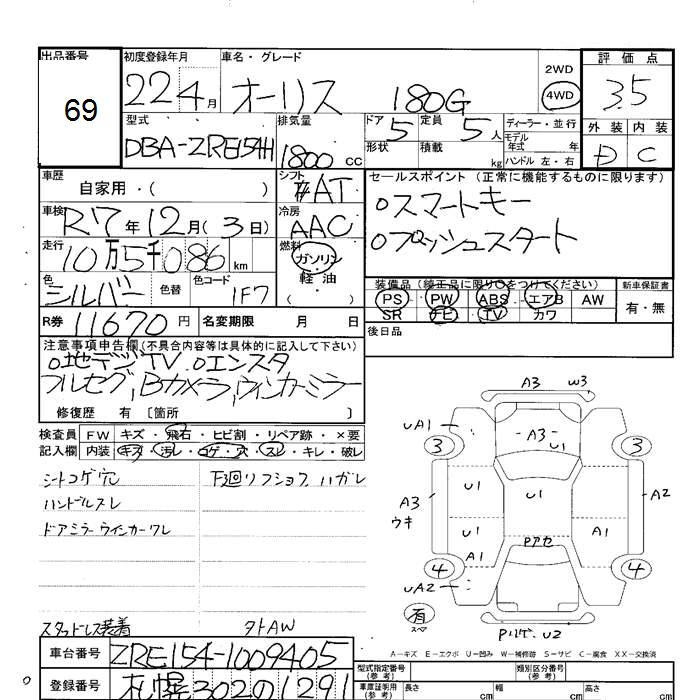 出品番号
69
初度登録年月
22年4月
車名・グレード
オーリス 180G
2WD
4WD
評価点
3.5
外装 内装
D C
型式
DBA-ZRE154H
排気量
1800 CC
ドア 5
定員 5人
形状
積載 kg
ディーラー・並行
モデル年式 年式
ハンドル 左・右
車歴
自家用・( )
シフト
AT
車検
R7年12月(3日)
冷房
AAC
走行
10万5千086 km
燃料
ガソリン
軽・油
( )
色
シルバー
色替
色コード
1F7
R券 11670円
名変期限 月 日
セールスポイント(正常に機能するものに限ります)
oスマートキー
oプッシュスタート
装備品(純正品に限り○をつけてください)
PS PW ABS エアB AW
SR ナビ TV カワ
新車保証書
有・無
後日品
注意事項申告欄(不具合内容等は具体的に記入して下さい)
o地デジTV oエンスタ
フルセグ,Bカメラ,ウィンカーミラー
修復歴 有〔箇所 〕
検査員記入欄
FW キズ・飛石・ヒビ割・リペア跡・×要
内装 キズ・汚レ・コゲ・穴・スレ・キレ・破レ
シートコゲ穴
ハンドルスレ
ドアミラーウインカーワレ
下廻リフショクハガレ
スタッドレス装着
タトAW
A3 W3
UA1
3
A3
U1
3
A3
ウキ
U1
U1
A2
U1
A1
Pアセ
A1
4
4
UA2
有
スペ
Pリゲ U2
A-キズ E-エクボ U-凹み W-補修跡 S-サビ C-腐食 XX-交換済
車台番号
ZRE154-1009405
登録番号
札幌302の1291
型式指定番号
(参考)
類別区分番号
(参考)
車庫証明用
(参考)
長さ cm
幅 cm
高さ cm